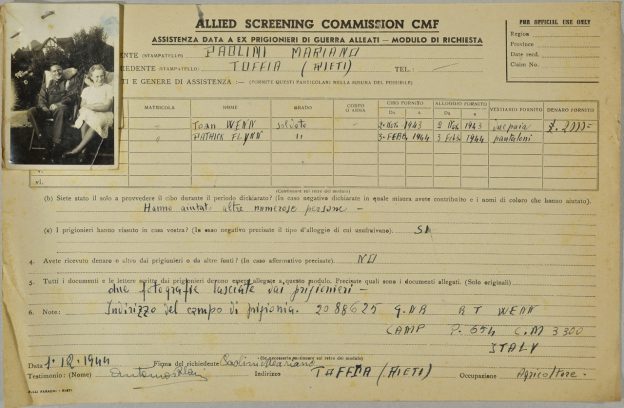 ALLIED SCREENING COMMISSION CMF
ASSISTENZA DATA A EX PRIGIONIERI DI GUERRA ALLEATI — MODULO DI RICHIESTA
FOR OFFICIAL USE ONLY
Region
Province
Date recd.
Claim No.
ENTE (STAMPATELLO) PAOLINI MARIANO
CEDENTE (STAMPATELLO): TUFFIA (RIETI) TEL:
TI E GENERE DI ASSISTENZA :— (FORNITE QUESTI PARTICOLARI NELLA MISURA DEL POSSIBILE)
MATRICOLA NOME GRADO CORPO O ARMA CIBO FORNITO ALLOGGIO FORNITO VESTIARIO FORNITO DENARO FORNITO
Da a Da a
WENN soldato 2 Nov. 1943 2 Nov 1943 un paia
PATRICK FLYNN " 3 FEBB. 1944 3 Febb. 1944 pantaloni
VI.
(Continuare sul retro del modulo)
(b) Siete stato il solo a provvedere il cibo durante il periodo dichiarato? (In caso negativo dichiarate in quale misura avete contribuito e i nomi di coloro che hanno aiutato).
Hanno aiutato altre numerose persone —
(c) I prigionieri hanno vissuto in casa vostra? (In caso negativo precisate il tipo d'alloggio di cui usufruivano). SI
4. Avete ricevuto denaro o altro dai prigionieri o da altre fonti? (In caso affermativo precisate). NO
5. Tutti i documenti e le lettere scritte dai prigionieri devono essere allegate a questo modulo. Precisate quali sono i documenti allegati. (Solo originali)
due fotografie lasciate dai prigionieri —
6. Note: Indirizzo del campo di prigionia. 2088625 G.NR R T WENN
CAMP P. 654 C.M 3300
ITALY
Data 1.12.1944 Firma del richiedente Paolini Mariano
Testimonio: (Nome) Indirizzo TUFFIA (RIETI) Occupazione Agricoltore.